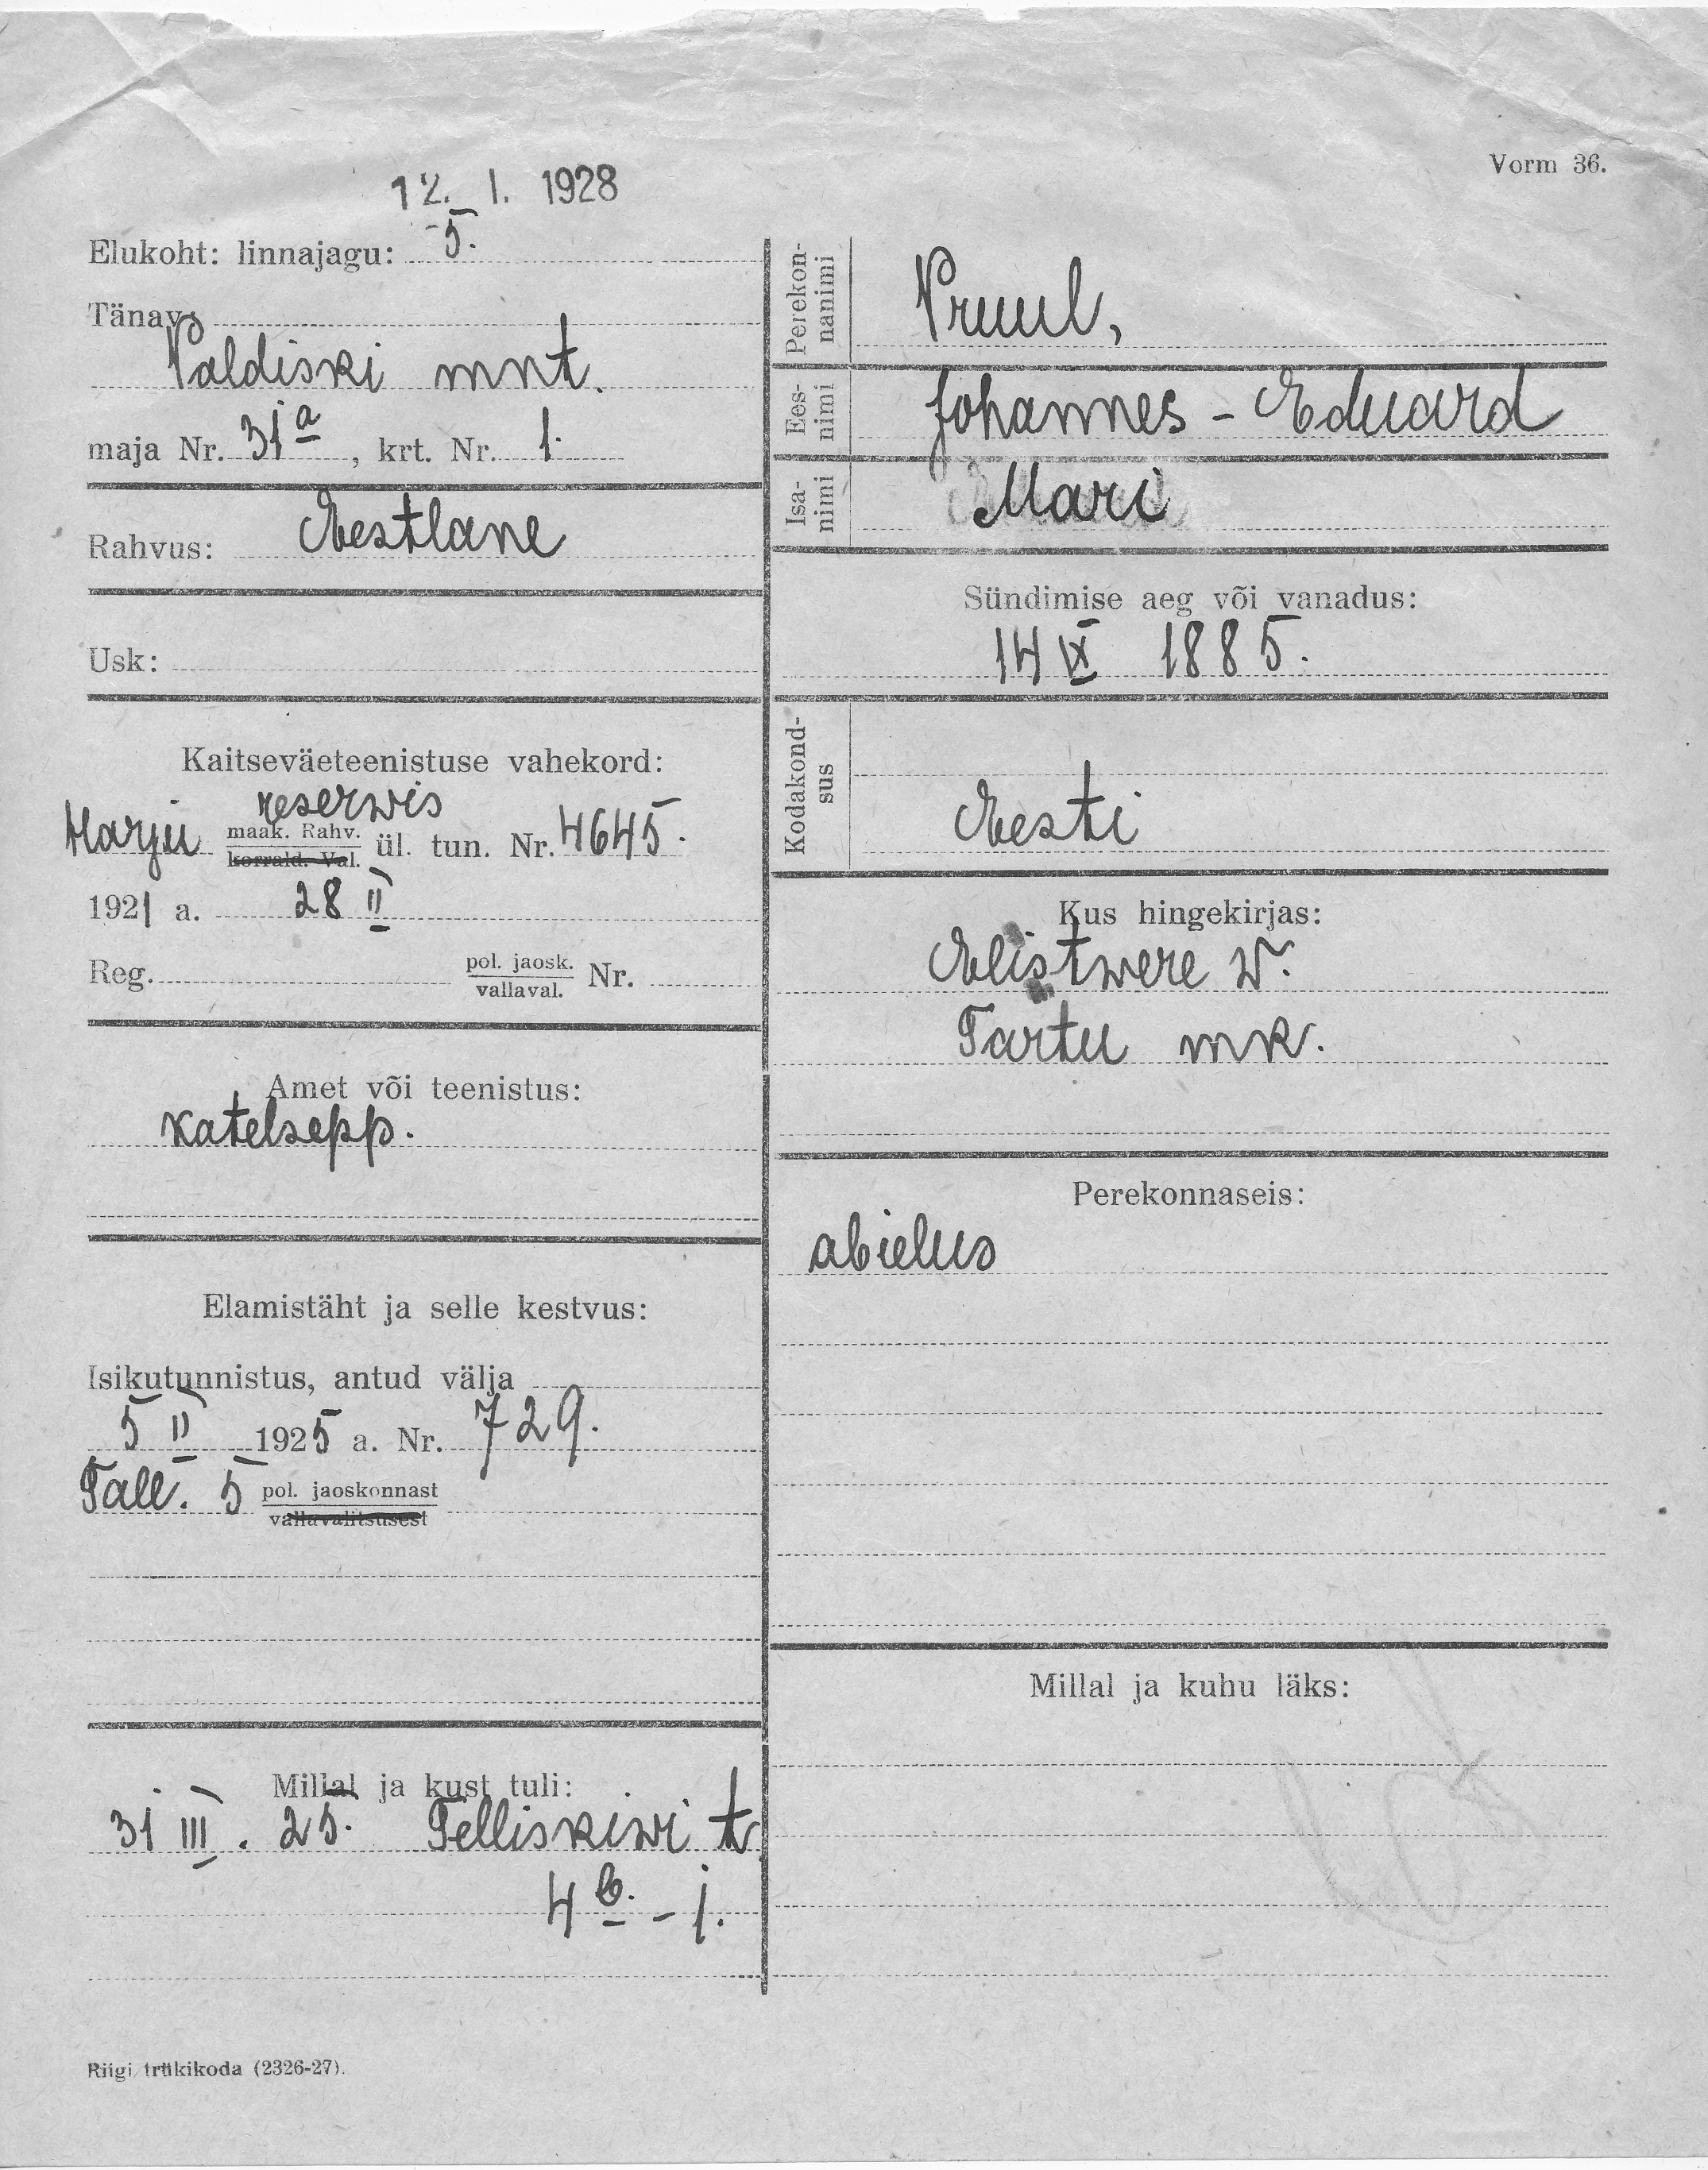 Vorm 36.
12. I. 1928
Elukoht: linnajagu: 5.
Tänav:
Paldiski mnt.
maja Nr. 31a, krt. Nr. 1.
Rahvus: Eestlane
Usk:
Kaitseväeteenistuse vahekord:
reserwis
Harju maak. Rahv. ül. tun. Nr. 4645.
korrald. Val.
1921 a. 28 II
Reg. pol. jaosk. Nr.
vallaval.
Amet või teenistus:
katelsepp.
Elamistäht ja selle kestvus:
Isikutunnistus, antud välja
5 II 1925 a. Nr. 729.
Tall. 5 pol. jaoskonnast
vallavalitsusest
Millal ja kust tuli:
31 III. 25. Telliskiwi t.
4 b. - 1.
Riigi trükikoda (2326-27).
Perekon-
nanimi
Pruul,
Ees-
nimi
Johannes - Eduard
Isa-
nimi
Mari
Sündimise aeg või vanadus:
14 IX 1885.
Kodakond-
sus
Eesti
Kus hingekirjas:
Elistwere w.
Tartu mk.
Perekonnaseis:
abielus
Millal ja kuhu läks: